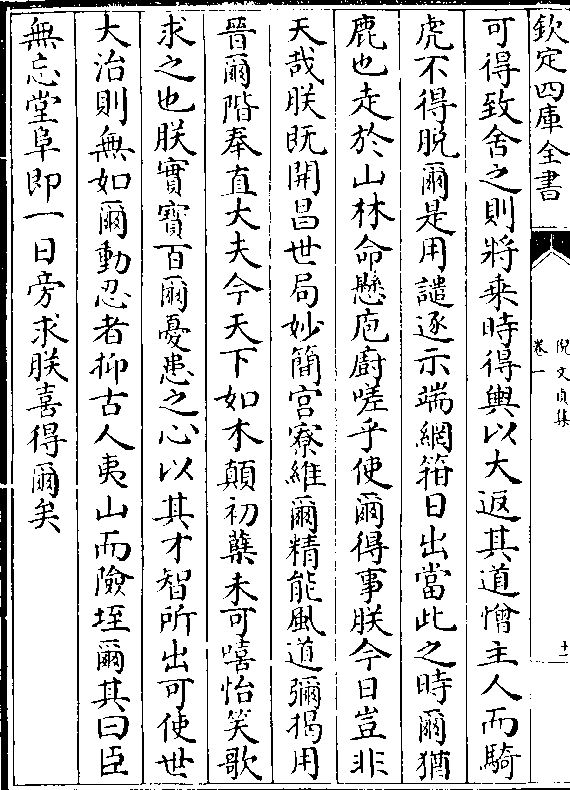 欽定四庫全書
倪文貞集
卷一
十一
可得致舍之則將乗時得輿以大返其道憎主人而騎
虎不得脱爾是用譴逐示端網箝日出當此之時爾猶
鹿也走於山林命懸庖廚嗟乎使爾得事朕今日豈非
天哉朕既開昌世局妙簡宫寮維爾精能風道彌掲用
晉爾階奉直大夫今天下如木顛初蘖未可嘻怡笑歌
求之也朕實寳百爾憂患之心以其才智所出可使世
大治則無如爾動忍者抑古人夷山而險垤爾其曰臣
無忘堂阜即一日旁求朕喜得爾矣